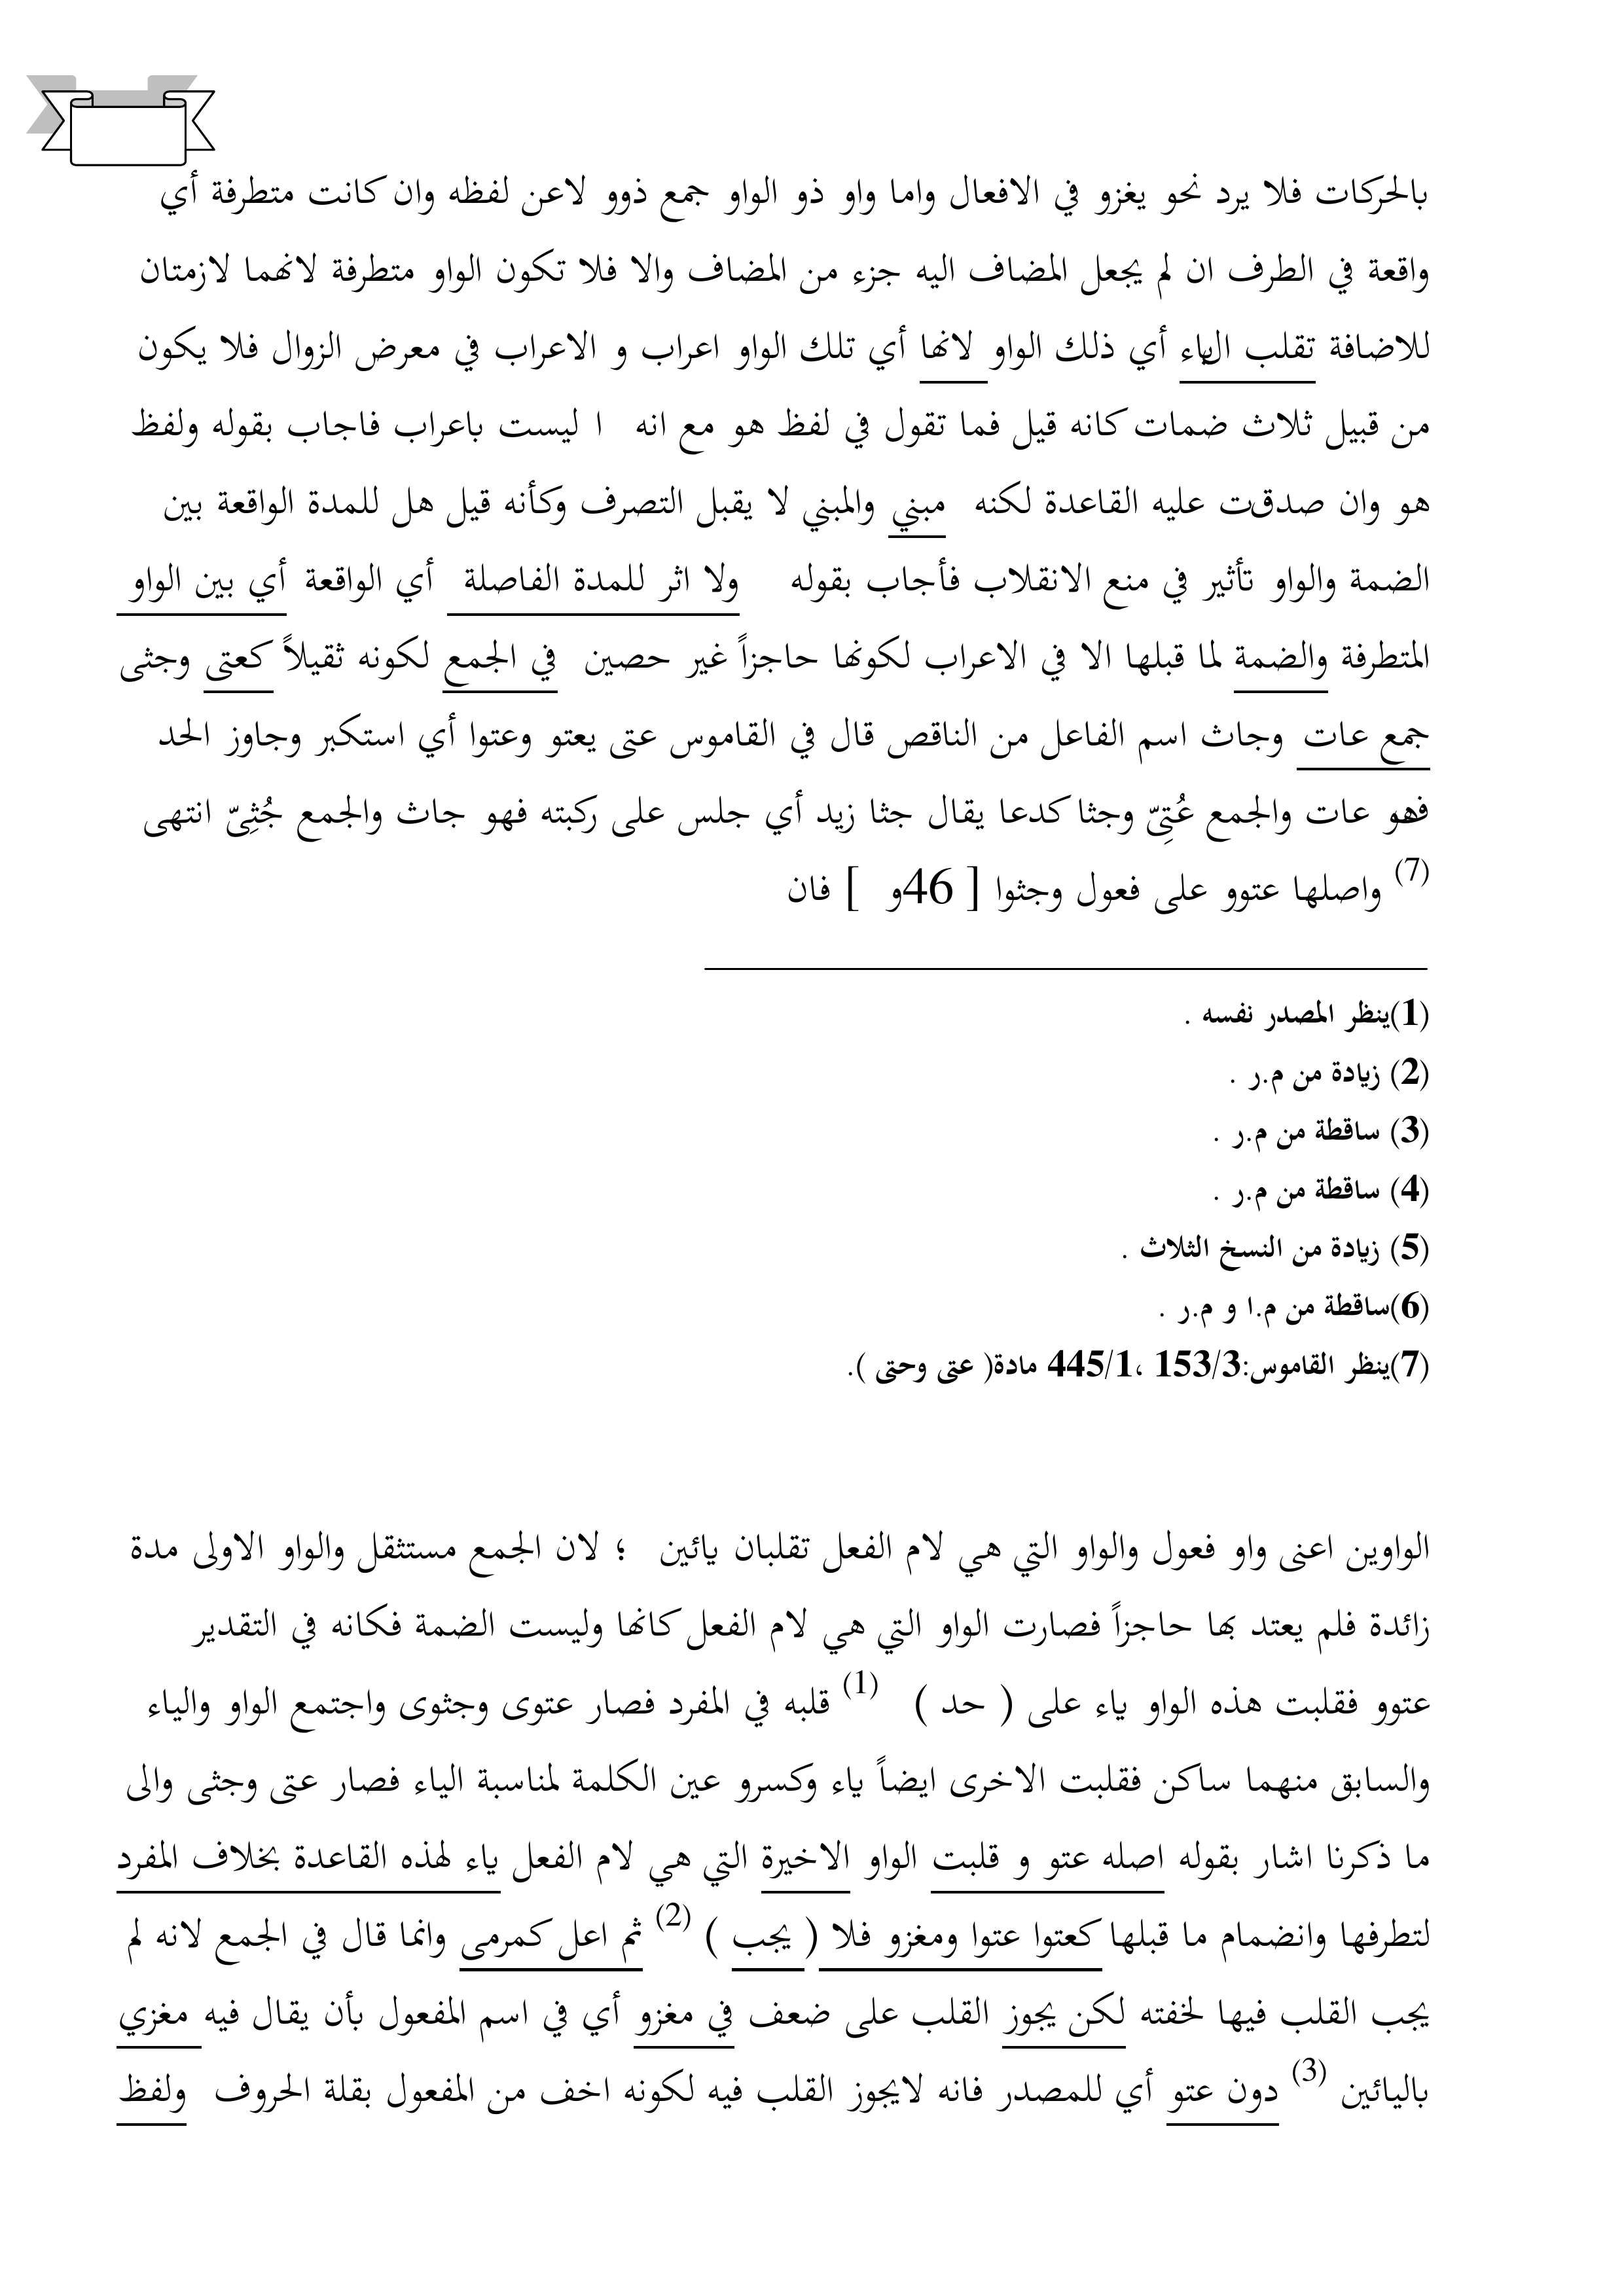 بالحركات فلا يرد نحو يغزو في الافعال واما واو ذو الواو جمع ذوو لاعن لفظه وان كانت متطرفة أي
واقعة في الطرف ان لم يجعل المضاف اليه جزء من المضاف والا فلا تكون الواو متطرفة لانهما لازمتان
للاضافة تقلب الياء أي ذلك الواو لانها أي تلك الواو اعراب و الاعراب في معرض الزوال فلا يكون
من قبيل ثلاث ضمات كانه قيل فما تقول في لفظ هو مع انه ا ليست باعراب فاجاب بقوله ولفظ
هو وان صدقت عليه القاعدة لكنه مبني والمبني لا يقبل التصرف وكأنه قيل هل للمدة الواقعة بين
الضمة والواو تأثير في منع الانقلاب فأجاب بقوله ولا اثر للمدة الفاصلة أي الواقعة أي بين الواو
المتطرفة والضمة لما قبلها الا في الاعراب لكونها حاجزاً غير حصين في الجمع لكونه ثقيلاً كعتى وجثى
جمع عات وجاث اسم الفاعل من الناقص قال في القاموس عتى يعتو وعتوا أي استكبر وجاوز الحد
فهو عات والجمع عُتِىّ وجثا كدعا يقال جثا زيد أي جلس على ركبته فهو جاث والجمع جُثِىّ انتهى
(7) واصلها عتوو على فعول وجثوا [ 46و ] فان
(1)ينظر المصدر نفسه .
(2) زيادة من م.ر .
(3) ساقطة من م.ر .
(4) ساقطة من م.ر .
(5) زيادة من النسخ الثلاث .
(6)ساقطة من م.ا و م.ر .
(7)ينظر القاموس:153/3 ،445/1 مادة( عتى وحتى ).
الواوين اعنى واو فعول والواو التي هي لام الفعل تقلبان يائين ؛ لان الجمع مستثقل والواو الاولى مدة
زائدة فلم يعتد بها حاجزاً فصارت الواو التي هي لام الفعل كانها وليست الضمة فكانه في التقدير
عتوو فقلبت هذه الواو ياء على ( حد ) (1) قلبه في المفرد فصار عتوى وجثوى واجتمع الواو والياء
والسابق منهما ساكن فقلبت الاخرى ايضاً ياء وكسرو عين الكلمة لمناسبة الياء فصار عتى وجثى والى
ما ذكرنا اشار بقوله اصله عتو و قلبت الواو الاخيرة التي هي لام الفعل ياء لهذه القاعدة بخلاف المفرد
لتطرفها وانضمام ما قبلها كعتوا عتوا ومغزو فلا ( يجب ) (2) ثم اعل كمرمى وانما قال في الجمع لانه لم
يجب القلب فيها لخفته لكن يجوز القلب على ضعف في مغزو أي في اسم المفعول بأن يقال فيه مغزي
باليائين (3) دون عتو أي للمصدر فانه لايجوز القلب فيه لكونه اخف من المفعول بقلة الحروف ولفظ